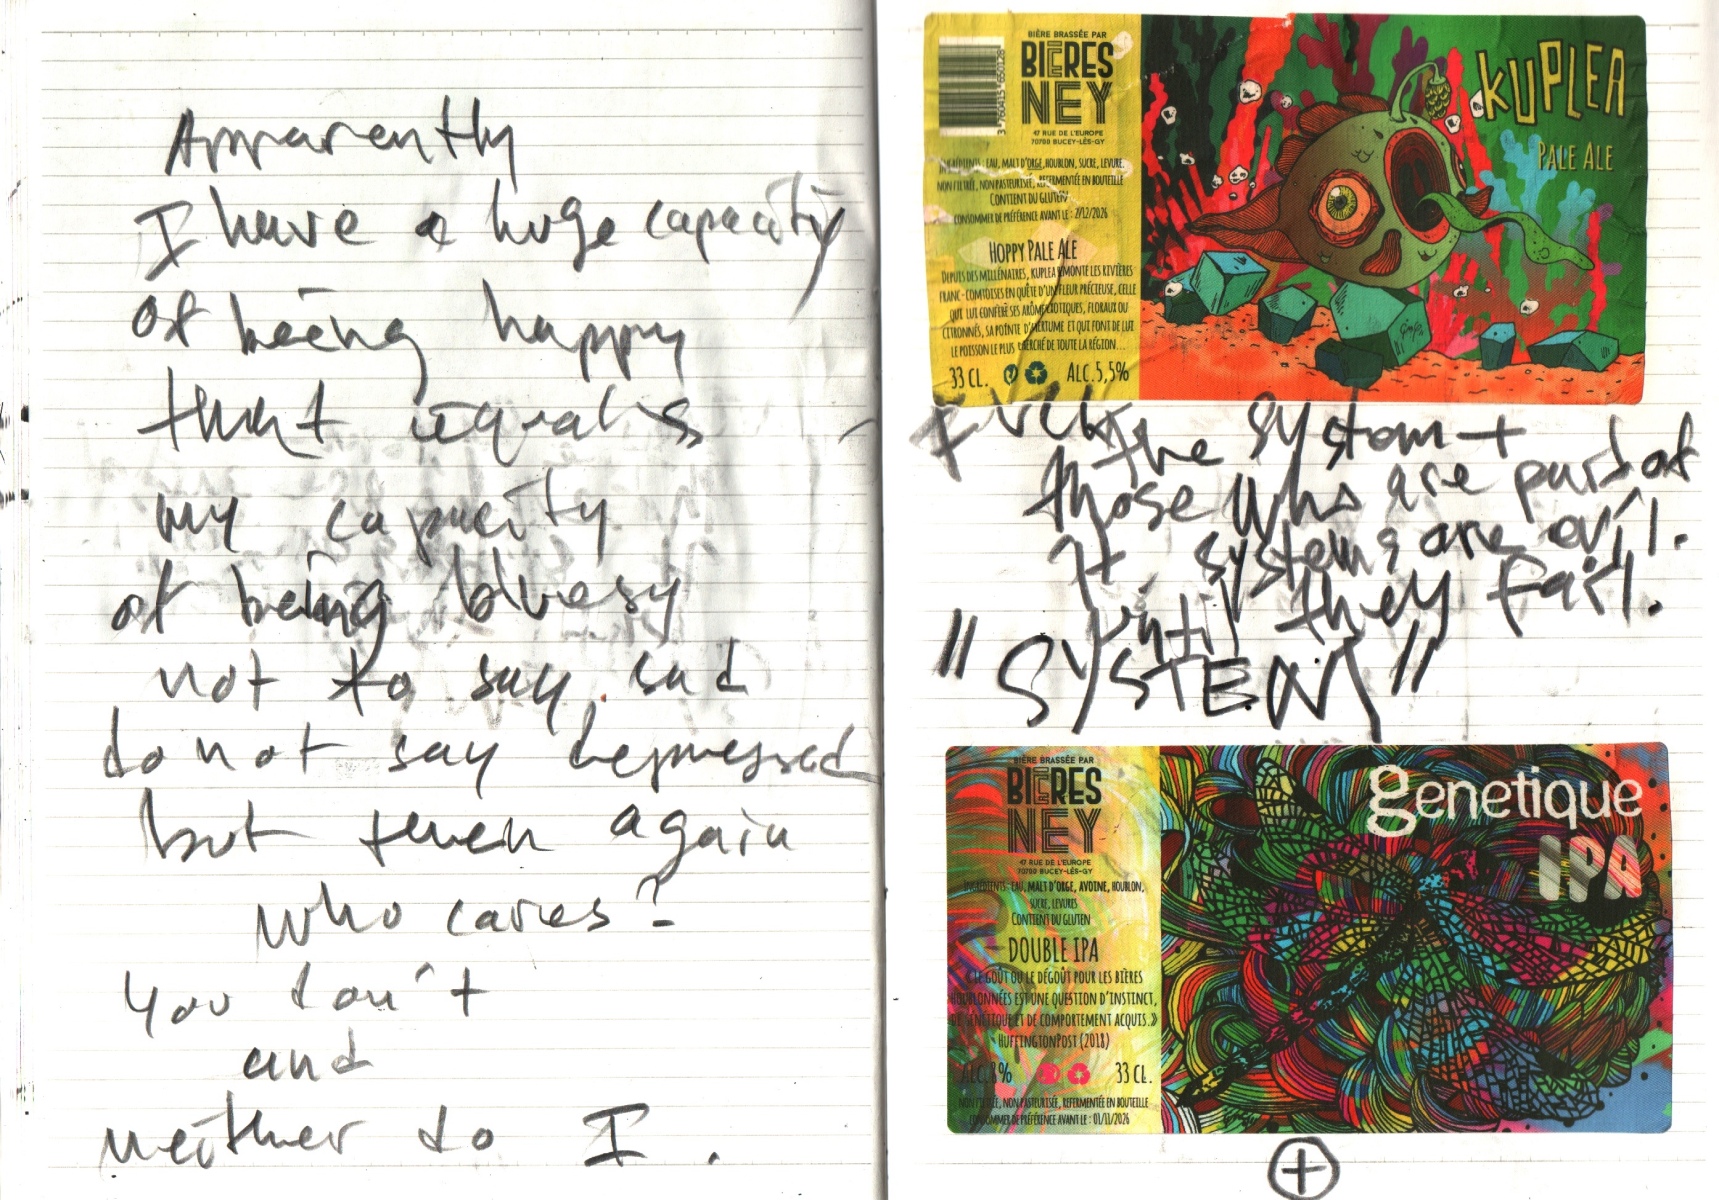 Apparently
I have a huge capacity
of being happy
that equals
my capacity
of being bluesy
not to say sad
do not say depressed
but then again
who cares?
You don't
and
neither do I.
3 760415 650128
BIÈRE BRASSÉE PAR
BIERES
NEY
47 RUE DE L'EUROPE
70700 BUCEY-LÈS-GY
INGRÉDIENTS : EAU, MALT D'ORGE, HOUBLON, SUCRE, LEVURE.
NON FILTRÉE, NON PASTEURISÉE, REFERMENTÉE EN BOUTEILLE
CONTIENT DU GLUTEN
CONSOMMER DE PRÉFÉRENCE AVANT LE : 2/12/2026
HOPPY PALE ALE
DEPUIS DES MILLÉNAIRES, KUPLEA REMONTE LES RIVIÈRES
FRANC-COMTOISES EN QUÊTE D'UN FLEUR PRÉCIEUSE, CELLE
QUI LUI CONFÈRE SES ARÔMES EXOTIQUES, FLORAUX OU
CITRONNÉS, SA POINTE D'AMERTUME ET QUI FONT DE LUI
LE POISSON LE PLUS CHERCHÉ DE TOUTE LA RÉGION...
33 CL. ALC. 5,5%
KUPLEA
PALE ALE
Fuck the system +
those who are part of
it. systems are evil.
until they fail.
"SYSTEM"
BIÈRE BRASSÉE PAR
BIERES
NEY
47 RUE DE L'EUROPE
70700 BUCEY-LÈS-GY
INGRÉDIENTS : EAU, MALT D'ORGE, AVOINE, HOUBLON,
SUCRE, LEVURES
CONTIENT DU GLUTEN
DOUBLE IPA
« LE GOÛT OU LE DÉGOÛT POUR LES BIÈRES
HOUBLONNÉES EST UNE QUESTION D'INSTINCT,
DE GÉNÉTIQUE ET DE COMPORTEMENT ACQUIS. »
HUFFINGTONPOST (2018)
ALC. 8% 33 CL.
NON FILTRÉE, NON PASTEURISÉE, REFERMENTÉE EN BOUTEILLE
CONSOMMER DE PRÉFÉRENCE AVANT LE : 01/11/2026
genetique
IPA
+